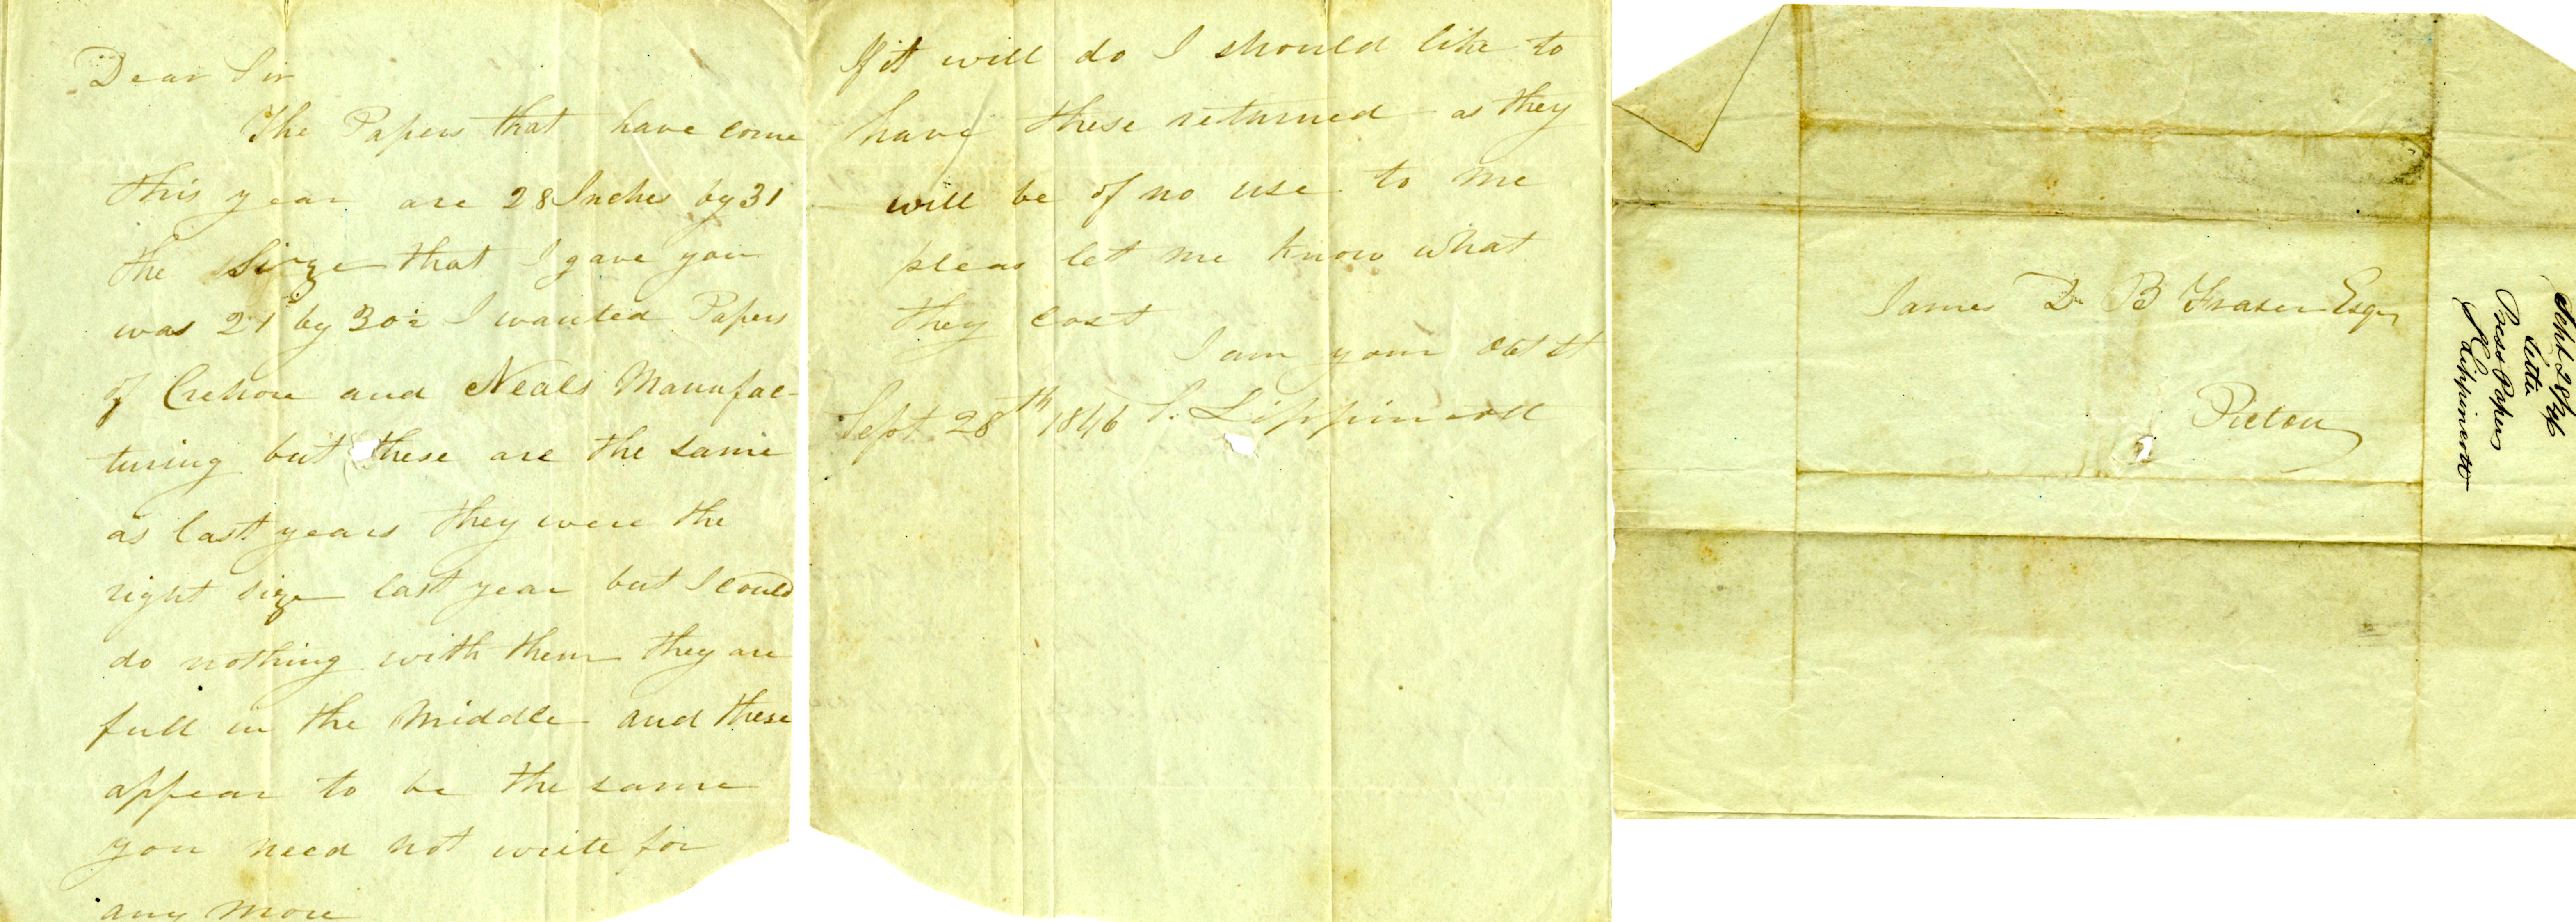 Dear Sir
The Papers that have come
this year are 28 Inches by 31
the Sizge that I gave you
was 21 by 30½ I wanted Papers
of Crehore and Neals Manufac-
turing but these are the same
as last years they were the
right size last year but I could
do nothing with them they are
full in the Middle and these
appear to be the same
you need not write for
any More
If it will do I should like to
have these returned as they
will be of no use to me
pleas let me know what
they cost
I am your obt st
Sept 28th 1846 S. Lippincott
James D B Fraser Esqr
Pictou
Sept 28/46
Letter
Press Papers
S Lippincott